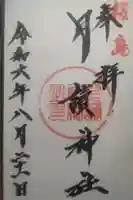 桜島
奉拝
月讀神社
令和六年八月二六日